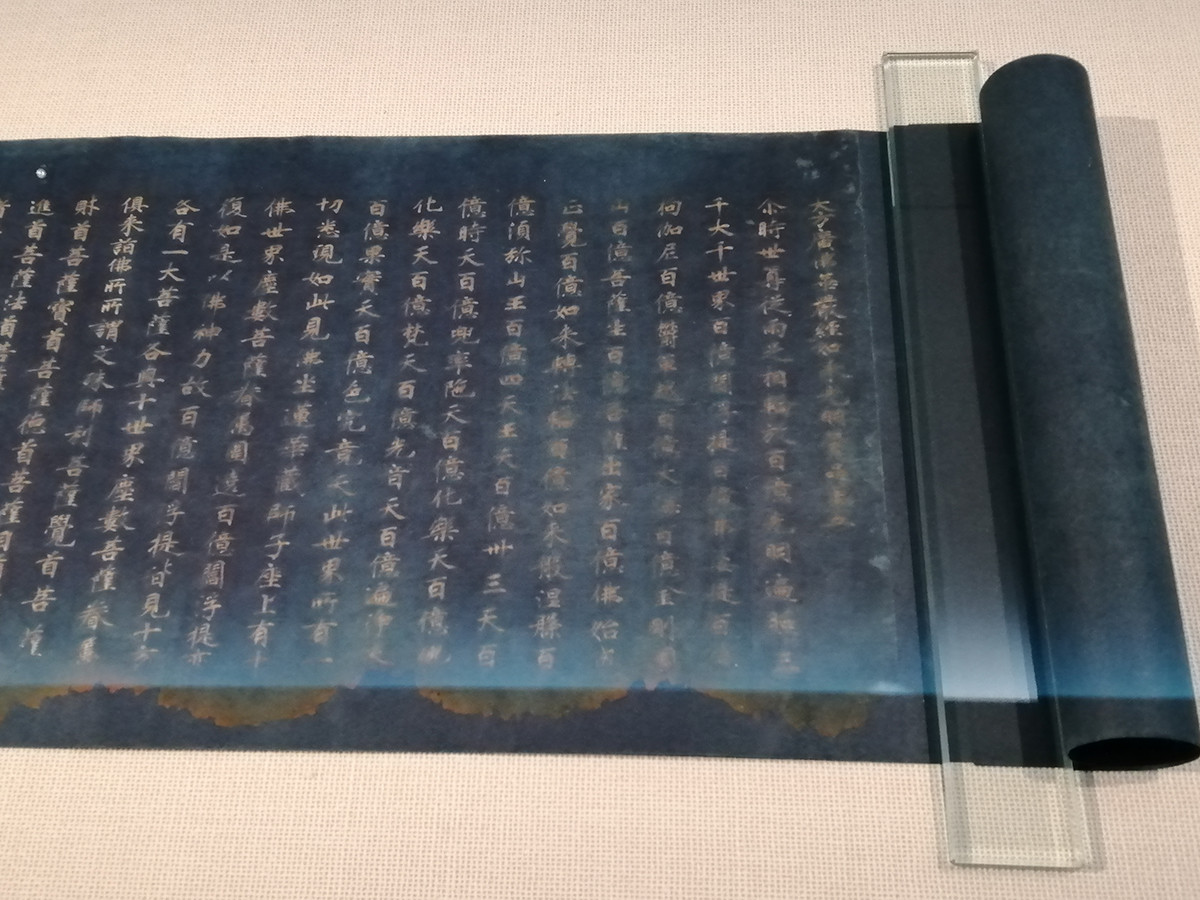 大方廣佛華嚴經如来光明覺品第五
尒時世尊從兩足相輪放百億光明遍照三
千大千世界百億閻浮提百億弗婆提百億
拘伽尼百億欝單越百億大海百億金剛圍
山百億菩薩生百億菩薩出家百億佛始成
正覺百億如来轉法輪百億如来般涅槃百
億須弥山王百億四天王天百億卅三天百
億時天百億兜率陁天百億化樂天百億他
化樂天百億梵天百億光音天百億遍淨天
百億果實天百億色究竟天此世界所有一
切悉現如此見佛坐蓮華藏師子座上有十
佛世界塵數菩薩眷属圍遶百億閻浮提亦
復如是以佛神力故百億閻浮提皆見十方
各有一大菩薩各與十世界塵數菩薩眷属
俱来詣佛所所謂文殊師利菩薩覺首菩薩
財首菩薩寶首菩薩德首菩薩目首
進首菩薩法首菩薩